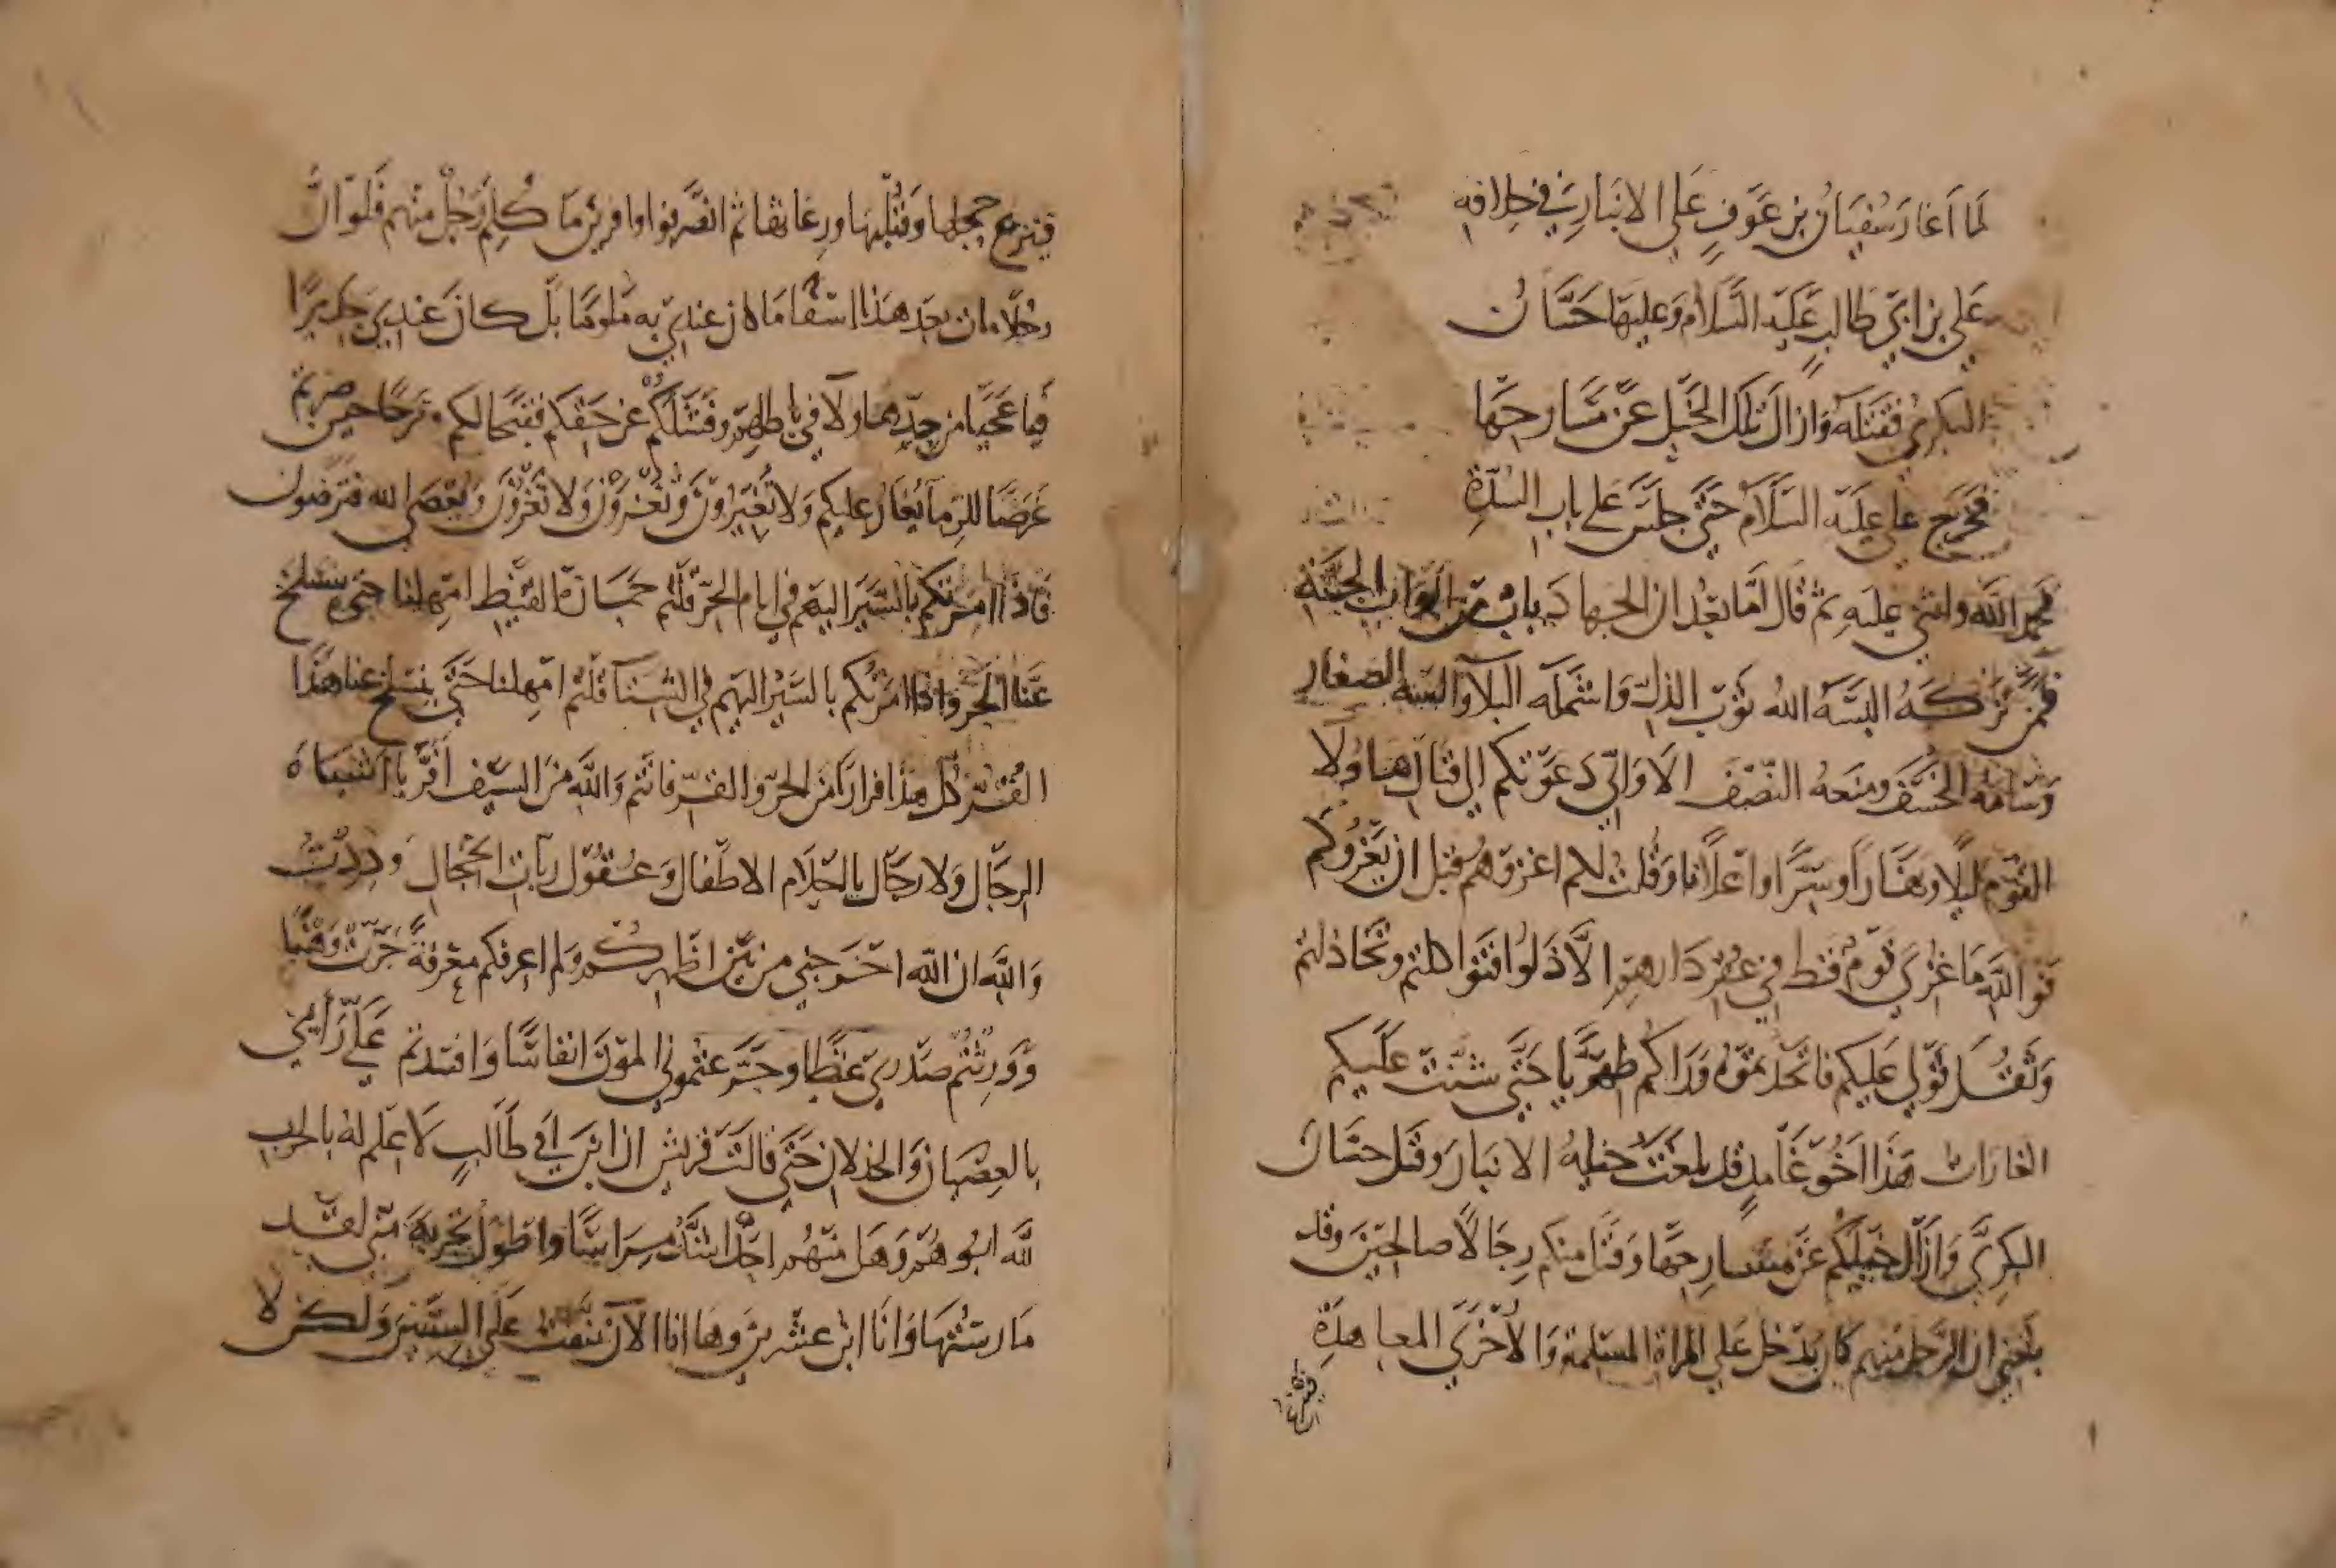 لما اغار سُفيان بن عَوفٍ عَلى الانبار في خلافه
عَلي بن ابي طالبٍ عَليه السَّلام وَعليهَا حَسَّانُ
البكريُ فقتله وَازال تلك الخيل عن مَسَارحها
فخرج علي عليه السَّلام حَتَّى جلسَ عَلي باب السُدةِ
فحمد الله واثني عليهِ ثم قال امَّا بعْد ان الجهاد بابٌ من ابواب الجنة
فمن تركَهُ البسَهُ اللهُ ثوب الذل وَاشمله البلآ والبسه الصغار
وسَامَهُ الخسفَ ومنعَهُ النصف الا وَاني دَعوتكم الي قتال هاولا
القوم ليلًا ونهارًا وسِرًا واعلانا وقلت لكم اغزوهُم قبل ان يغزُوكم
فو اللهِ مَا غزي قومٌ قط في عقر دَارهم الا ذَلوُا فتواكلتم وتخاذلتم
وَثقُل قولي عَليكم فاتخذتموه ورَاكم ظهريا حَتى شنت عَليكم
الغارات هَذا اخُو غامدٍ قد بلغت خيلهُ الانبار وَقتل حسان
البكريَّ وَازال خيلكم عَن مسَارحهَا وَقتل منكم رِجَالًا صالحين وقد
بلغني ان الرجل منهم كان يدخل عَلي المراة المسلمة وَالاخرَي المعاهدةِ
فينزع حجلها وَقلبَها ورِعَاثها ثم انصَرفوا وافرين مَا كلم رَجلٌ منهم فلو ان
رجُلًا مات بعد هذا اسفا مَا كان عندي به مَلومًا بل كان عندي جديرًا
فيا عَجبًا من جدِّ هاولاَ في باطلهم وفشلكُم عن حقكم فقبحًا لكم وترحًا حين صرتم
غرَضًا للرمآ يُغارُ عليكم وَلا تُغيرُونَ وتُغزَوْنَ وَلا تَغزُونَ وَيُعصَي الله فترضون
فاذا امرتكم بالسَّير اليهم في ايام الحر قلتم حَمَارة القيظ امهلنا حتي ينسلخ
عَنا الحر واذا امَرتكم بالسَّير اليهم في الشتآ قلتم امهلنا حَتَّي ينسلخ عنا هذا
القُر كلُ هذا فرارًا من الحرّ والقرّ فانتم وَاللهِ من السَيفِ افرُّ يا اشباه
الرجَال وَلا رجَال يا احلام الاطفال وَعُقول ربات الحجالِ وَدِدتُ
وَاللهِ ان اللّه اخرجني من بين اظهركُم وَلم اعرفكم معرفةً جرَّت وَهْنًا
وَوَرثتُم صَدري غيظًا وجَرَّعتموني الموت انفاسًا وَافسدتم عَليَّ رَأيي
بالعِصيان وَالخذلان حَتي قالت قريش ان ابن ابي طَالبٍ لَا علم لهُ بالحرب
لله ابُوهُم وَهَل منهُم احدٌ اشدُّ مِرَاسًا واطولُ تجربَة مني لقد
مَارستُهَا وَانَا ابن عشرين وها انا الآن نيفت عَلي الستين وَلكن لا